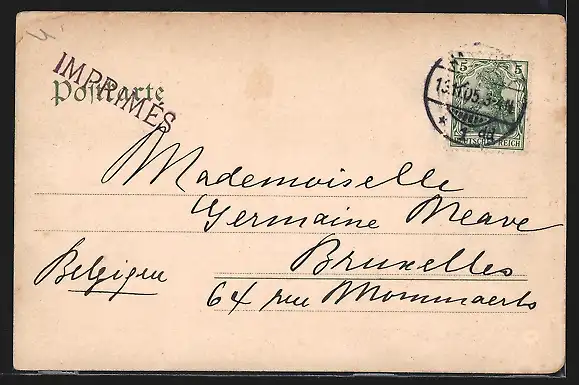 IMPRIMÉS
Postkarte
5 5
13.11.05.3-4N
* 1 dd
REICH
Mademoiselle
Germaine Neave
Bruxelles
Belgique
64 rue Mommaerts